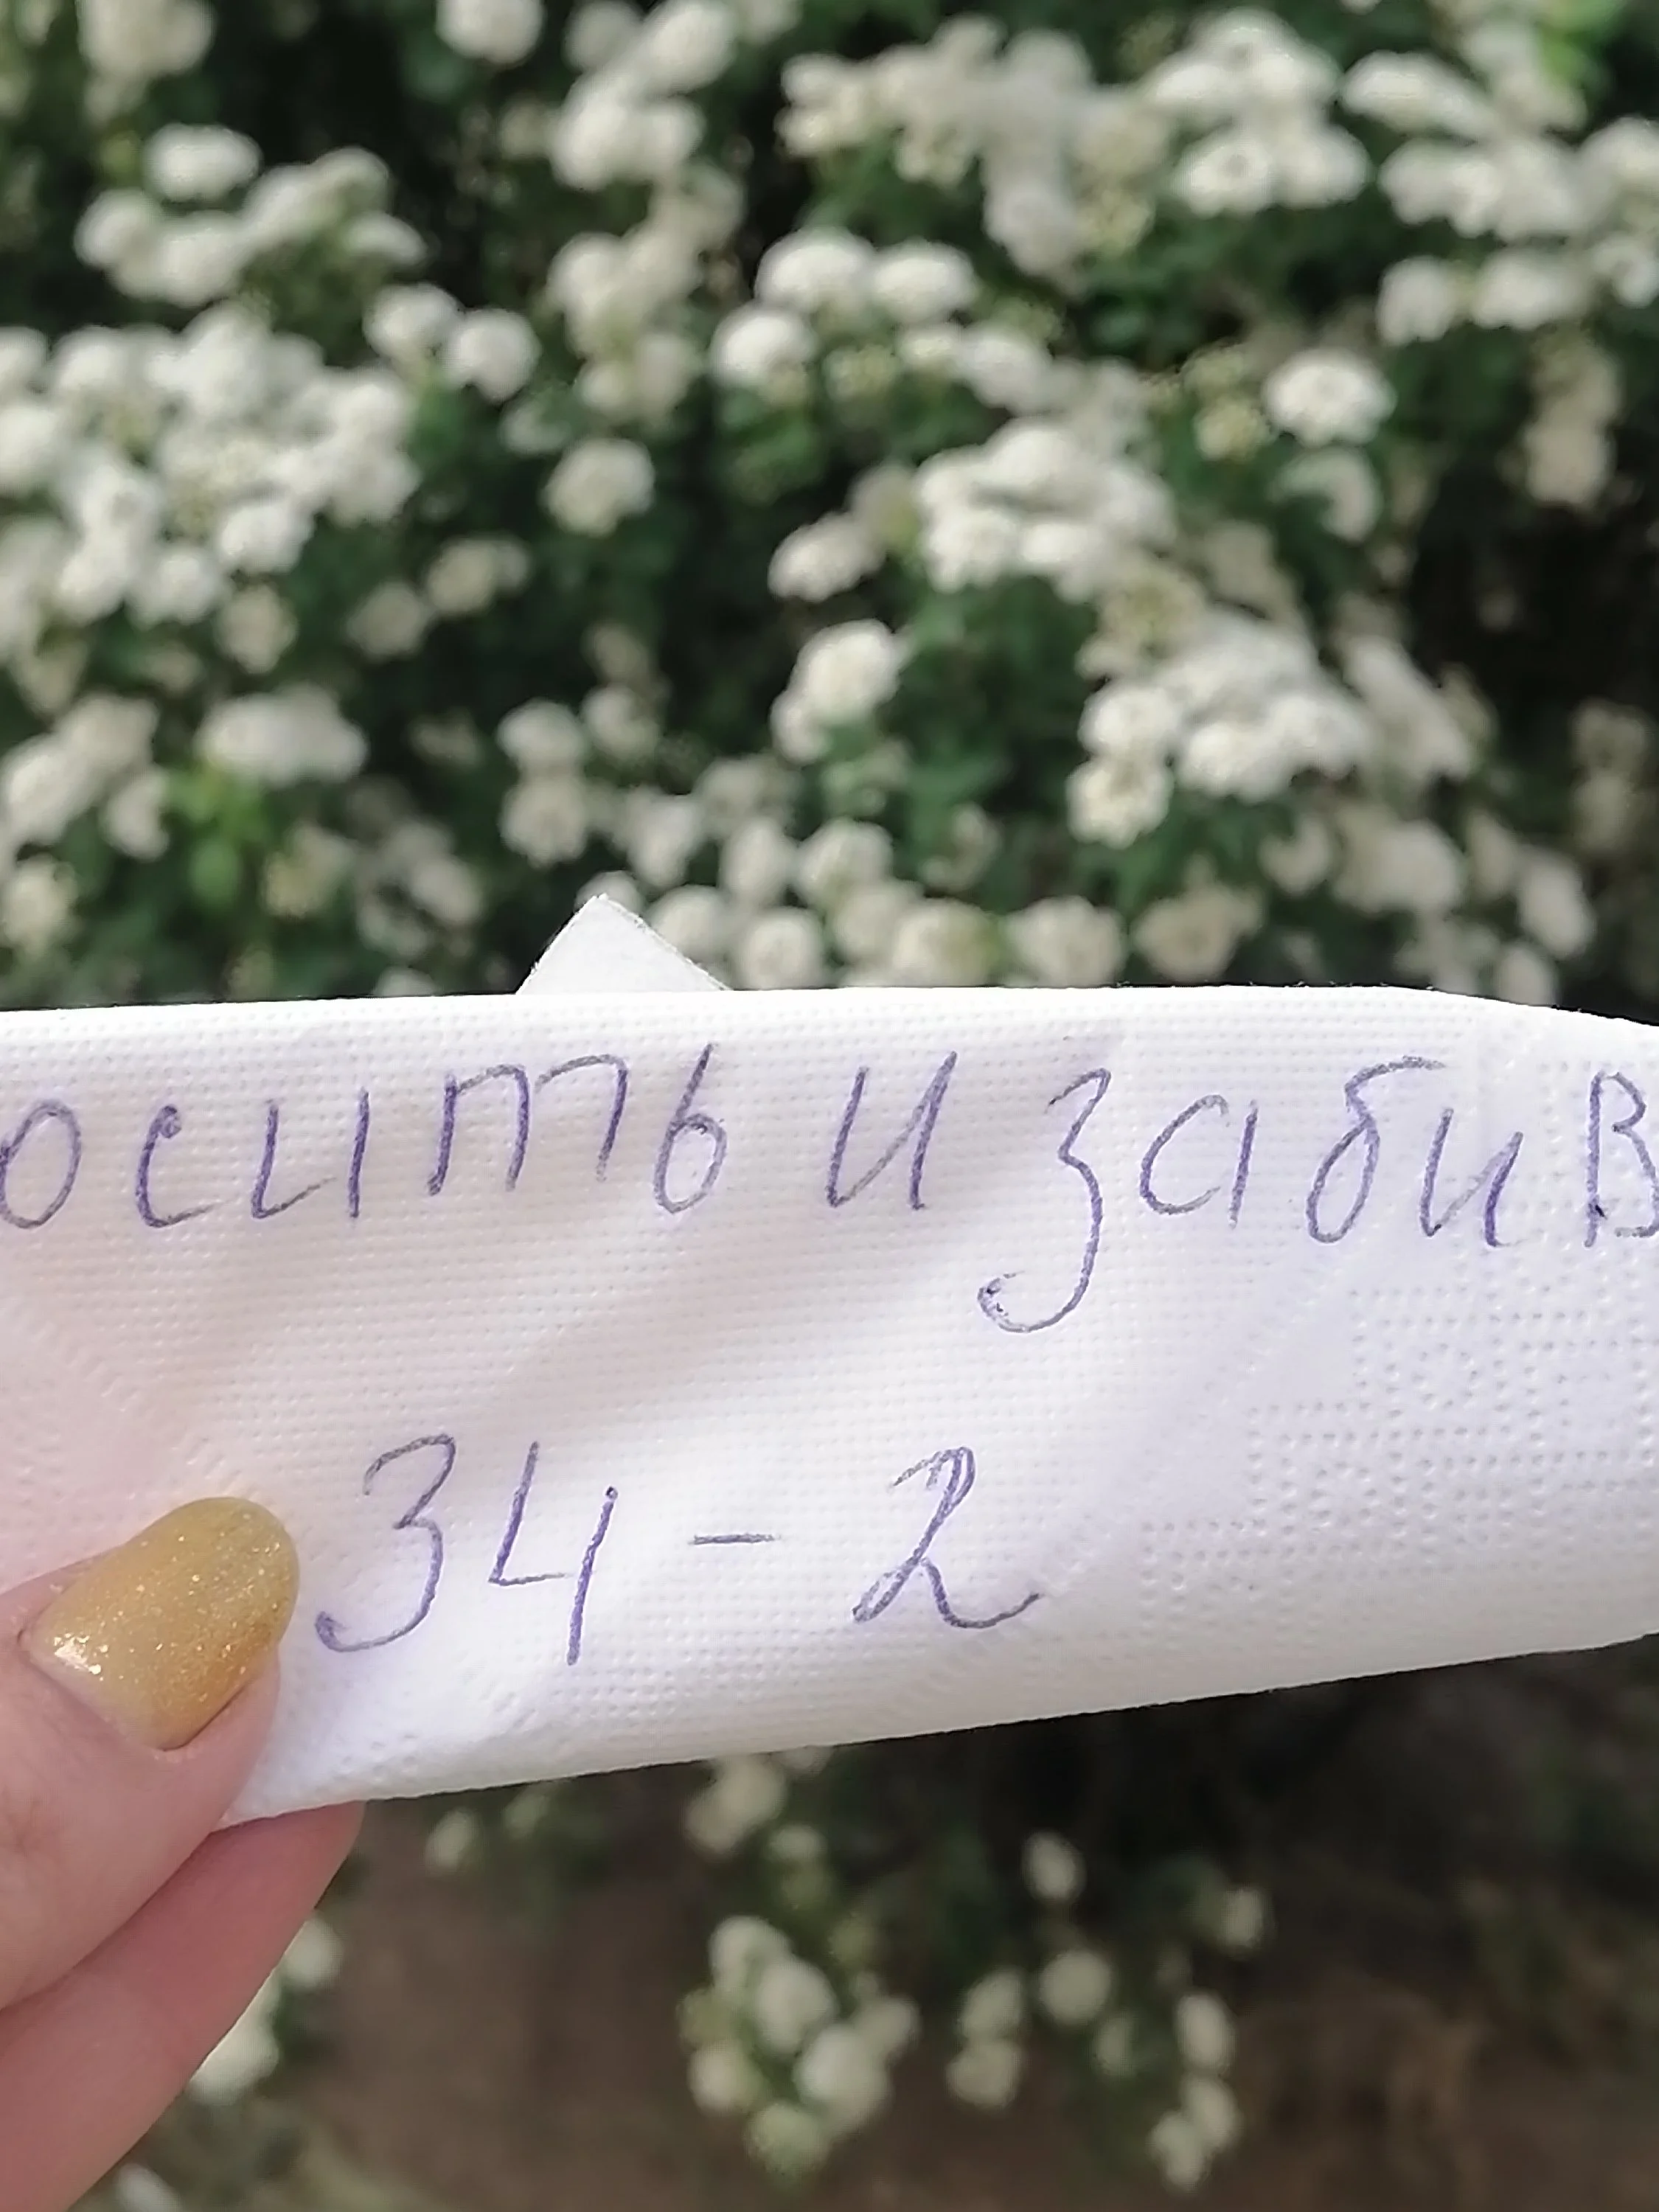 осить и забив
34-2